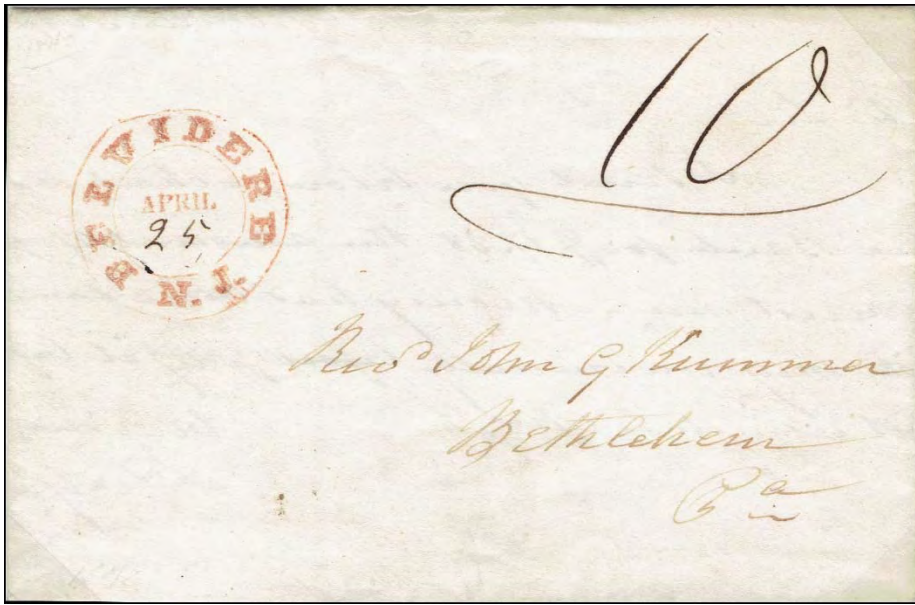 10
BELVIDERE
APRIL
25
N. J.
Revd John G Kummer
Bethlehem
Pa